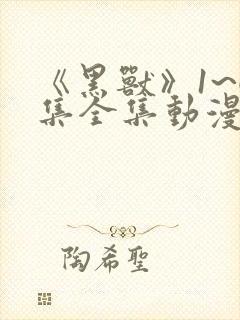 《黑獸》1~
集全集動漫
陶希聖